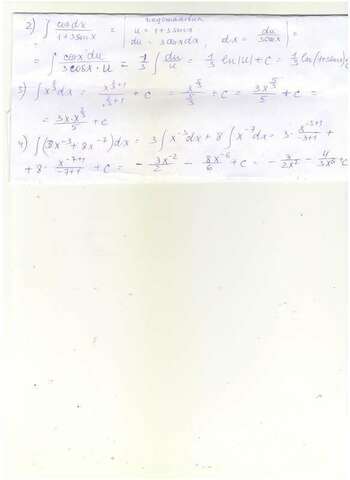 2) ∫ cosx dx / (1+3sinx) = | подстановка u = 1+3sinx du = 3cosxdx, dx = du/3cosx | =
= ∫ cosx du / (3cosx · u) = 1/3 ∫ du/u = 1/3 ln|u| + C = 1/3 ln|1+3sinx| + C
3) ∫ x^(2/3) dx = x^(2/3+1) / (2/3+1) + C = x^(5/3) / (5/3) + C = 3x^(5/3) / 5 + C =
= 3x·x^(2/3) / 5 + C
4) ∫(3x^-3 + 8x^-7)dx = 3∫x^-3 dx + 8∫x^-7 dx = 3 · x^(-3+1) / (-3+1) +
+ 8 · x^(-7+1) / (-7+1) + C = - 3x^-2 / 2 - 8x^-6 / 6 + C = - 3/2x² - 4/3x⁶ + C